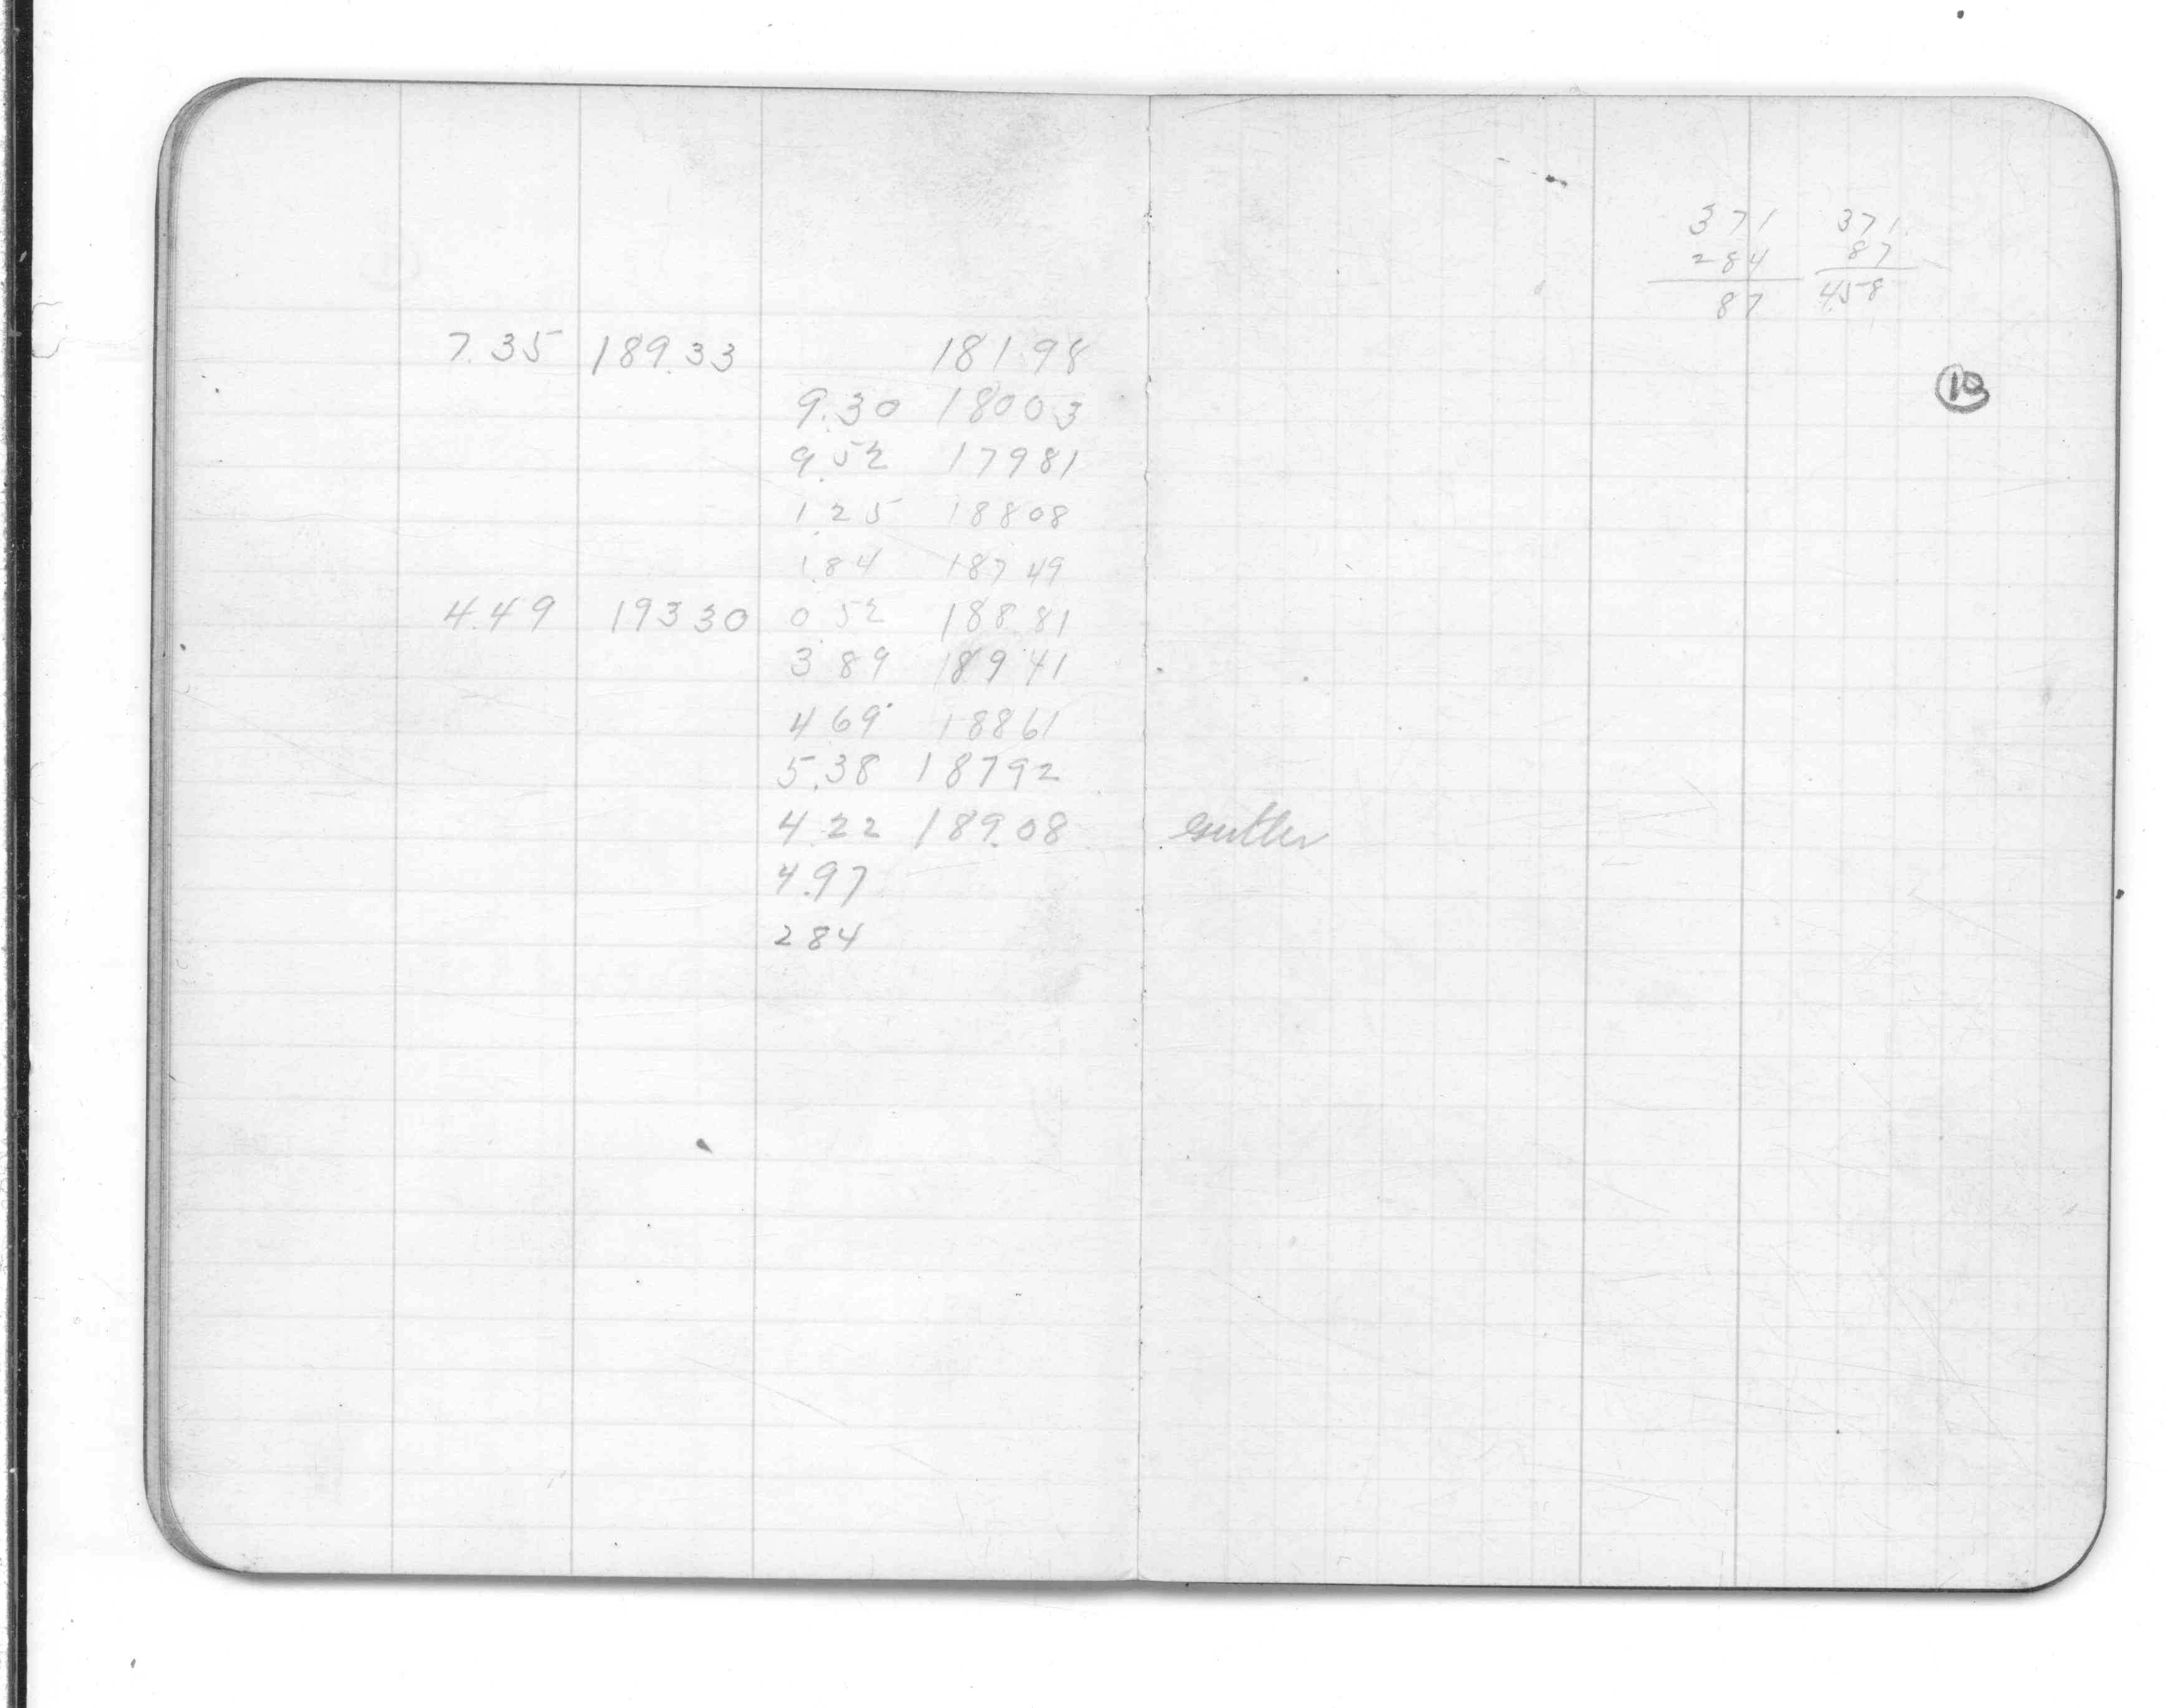 371 371
284 87
87 458
7.35 189.33 181.98
10
9.30 180 03
9.52 179 81
1.25 188 08
1.84 187 49
4.49 193 30 0 52 188.81
3 89 189 41
4 69 188 61
5.38 187 92
4.22 189.08 Gutter
4.97
2 84